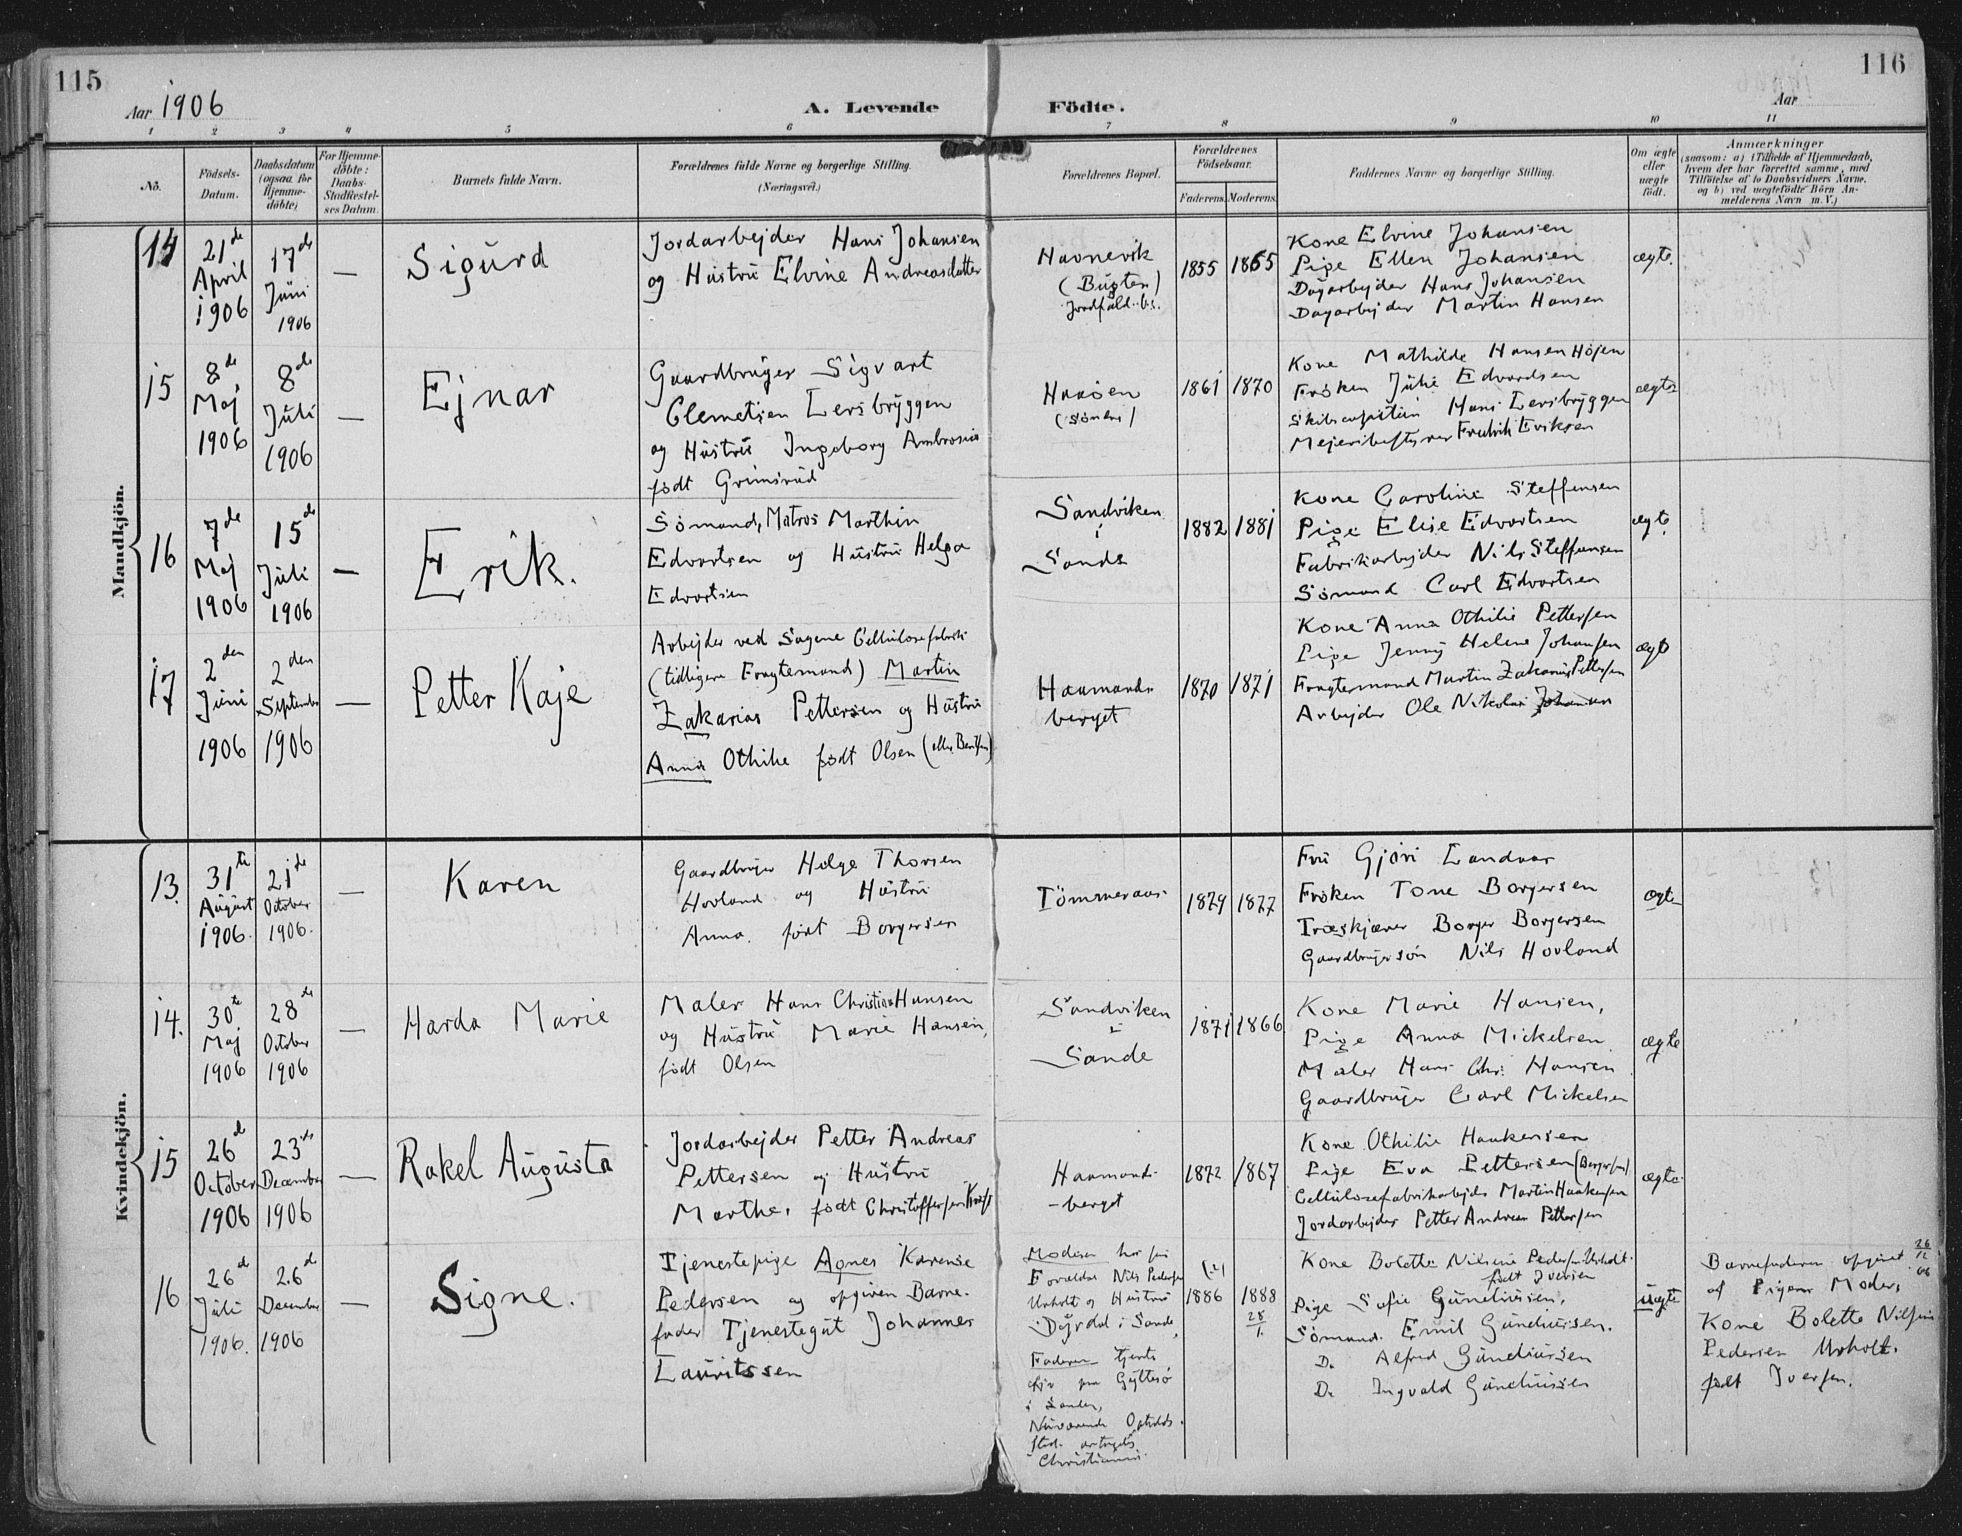 115
116
Aar 1906
A. Levende Födte.
Aar
1 2 3 4 5 6 7 8 9 10 11
No.
Födsels-
Datum.
Daabsdatum
(ogsaa for
Hjemme-
döbte)
For Hjemme-
döbte:
Daabs-
Stadfæstel-
ses Datum.
Barnets fulde Navn.
Forældrenes fulde Navne og borgerlige Stilling.
(Næringsvei.)
Forældrenes Bopæl.
Forældrenes
Födselsaar.
Faderens. Moderens.
Faddernes Navne og borgerlige Stilling.
Om ægte
eller
uægte
født.
Anmærkninger
(saasom: a) i Tilfælde af Hjemmedaab,
hvem der har forrettet samme, med
Tilföielse af to Daabsvidners Navne,
og b) ved uægtefödte Börn An-
melderens Navn m. V.)
Mandkjön.
14
21de
April
1906
17de
Juni
1906
—
Sigurd
Jordarbejder Hans Johansen
og Hustru Elvine Andreasdatter
Havnevik
(Bugten)
1855
1865
Kone Elvine Johansen
Pige Ellen Johansen
Dagarbejder Hans Johansen
Dagarbejder Martin Hansen
ægte.
15
8de
Maj
1906
8de
Juli
1906
—
Ejnar
Gaardbruger Sigvart
Clemetsen Lersbryggen
og Hustru Ingeborg
født Grimsrud
1861
1870
Kone Mathilde Hansen Höjen
Fröken Julie Edvardsen
Hans Lersbryggen
Mejeribestyrer Fredrik Eriksen
ægte
16
7de
Maj
1906
15de
Juli
1906
—
Erik.
Sömand, Matros Marthin
Edvartsen og Hustru Helga
Edvartsen
Sandviken
i
Sande
1882
1881
Kone Caroline Steffensen
Pige Elise Edvartsen
Fabrikarbejder Nils Steffensen
Sömand Carl Edvartsen
ægte.
17
2den
Juni
1906
2den
September
1906
—
Petter Kaje
Arbejder ved Sagene Cellulosefabrik
(tidligere Fragtemand) Martin
Zakarias Pettersen og Hustru
Anna Othilie født Olsen
Haamands
berget
1870
1871
Kone Anna Othilie Pettersen
Pige Jenny Helene Johansen
Fragtemand Martin Zakarias Pettersen
Arbejder Ole Nikolai Johansen
ægte
Kvindekjön.
13.
31te
August
1906.
21de
October
1906.
—
Karen
Gaardbruger Helge Thorsen
Hovland og Hustru
Anna født Borgersen
Tömmeraas
1879
1877
Fru Gjöri
Fröken Tone Borgersen
Træskjærer Borger Borgersen
Gaardbrugersön Nils Hovland
ægte
14.
30te
Maj
1906
28de
October
1906
—
Harda Marie
Maler Hans Christian Hansen
og Hustru Marie Hansen,
født Olsen
Sandviken
i
Sande
1871
1866
Kone Marie Hansen,
Pige Anna Mickelsen
Maler Hans Chr. Hansen
Gaardbruger Carl Mickelsen
ægte
15
26de
October
1906
23de
December
1906
—
Rakel Augusta
Jordarbejder Petter Andreas
Pettersen og Hustru
Marthe, født Christoffersen
Haamands-
berget
1872
1867
Kone Othilie Haakensen
Pige Eva Pettersen
Cellulosefabrikarbejder Martin Haakensen
Jordarbejder Petter Andreas Pettersen
ægte
16
26de
Juli
1906.
26de
December
1906
—
Signe.
Tjenestepige Agnes Karense
Pedersen og opgiven Barne-
fader Tjenestegut Johannes
Lauritssen
Moderen hos sin
Forældre Nils Pedersen
Urholt og Hustru
i Sande,
Faderen tjente
i Sande,
Nuværende Opholds-
sted
Christiania
1886
1888
28
1.
Kone Bolette Nilsine Pedersen Urholt
født Iversen
Pige Sofie Gundiussen,
Sömand. Emil Gundiussen.
Do Alfred Gundiussen
Do Ingvald Gundiussen
uægte
Barnefaderen opgivet 26/12 06
af Pigens Moder,
Kone Bolette Nilsine
Pedersen Urholt.
født Iversen.